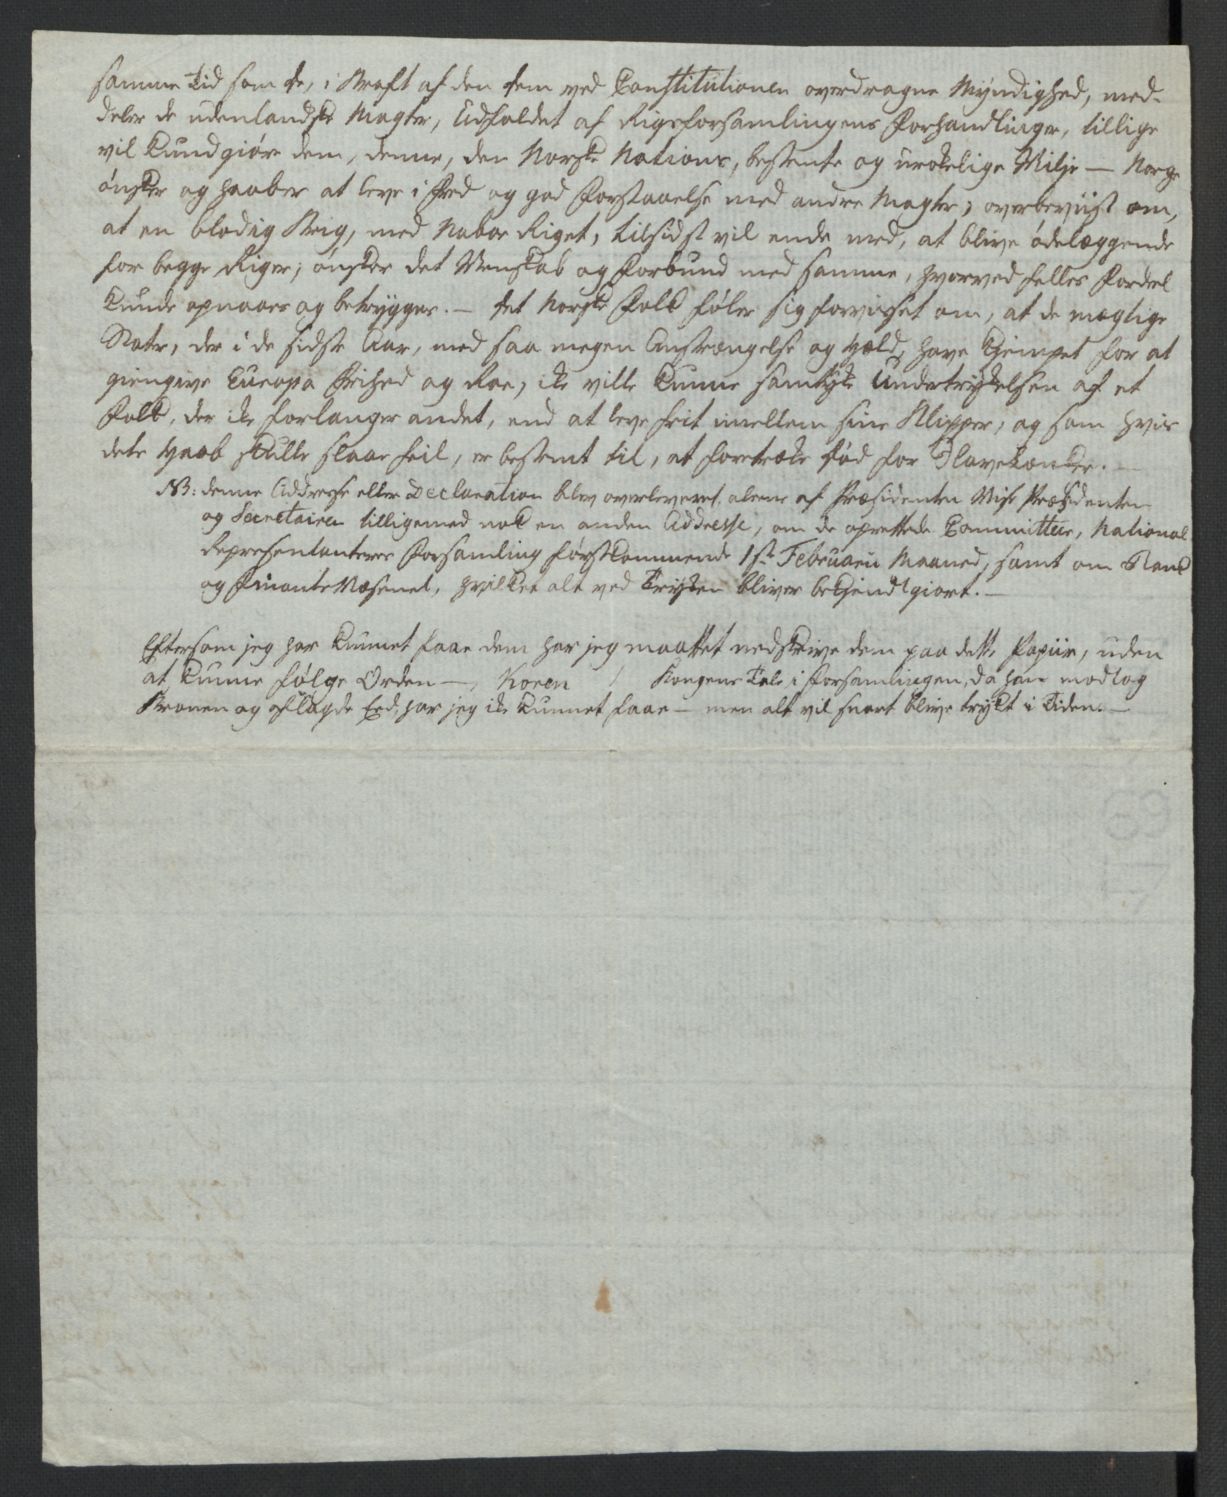 samme Tid som de, i Kraft af den dem ved Constitutionen overdragne Myndighed, med-
deler de udenlandske Magter, Udfaldet af Rigsforsamlingens Forhandlinger, tillige
vil Kundgiøre dem, denne, den Norske Nations, bestemte og urokelige Villje — Norge
ønsker og haaber at leve i Fred og god Forstaaelse med andre Magter; overbeviist om,
at en blodig Krig, med Naboe Riget, tilsidst vil ende med, at blive ødelæggende
for begge Riger; ønsker det Venskab og Forbund med samme, hvorved felles Fordeel
Kunde opnaaes og betrygges. — Det Norske Folk føler sig forvisset om, at de mægtige
Stater, der i de sidste Aar, med saa megen Anstrængelse og Held, have Kjempet for at
giengive Europa Frihed og Roe, ike ville Kunne samtyke Undertrykelsen af et
Folk, der ike forlanger andet, end at leve frit imellem sine Klipper, og som hvis
dets Haab skulle slaae feil, er bestemt til, at foretrække Død for Slavelænker. —
NB: denne Addresse eller Declaration blev overleveret alene af Præsidenten Vise Præsidenten
og Secretairen tilligemed nok en anden Addresse, om de oprettede Committeer, National
Representanternes Forsamling førstkommende 1ste Februarii Maaned, samt om Bank
og Finantz Væsenet, hvilket alt ved Trykken bliver bekjendtgiort. —
Eftersom jeg har Kunnet faae dem har jeg maattet nedskrive dem paa dette Papiir, uden
at Kunne følge Orden —, Koren / Kongens Tale i Forsamlingen, da han modtog
Kronen og aflagde Eed, har jeg ike Kunnet faae — men alt vil snart blive trykt i Tiden. —